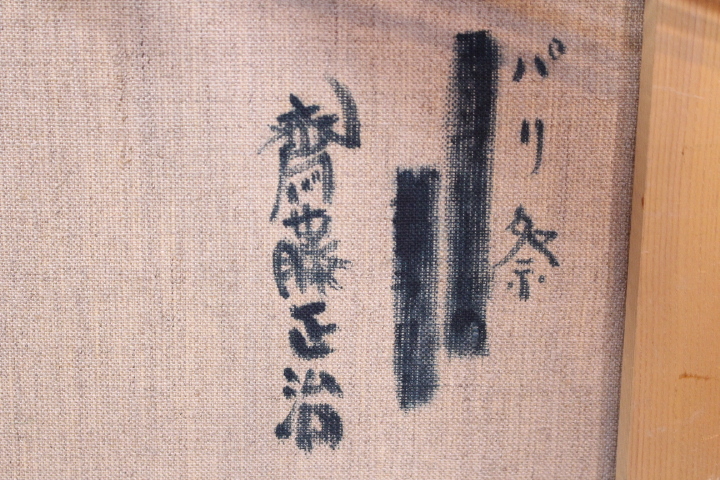 パリ祭
齋藤正治